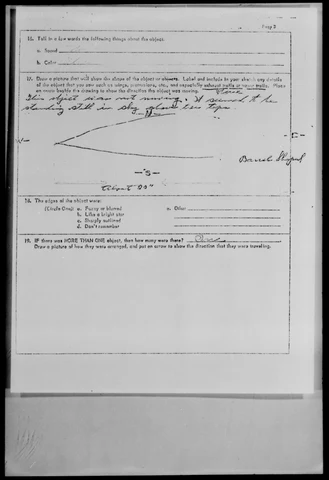 Page 3
15. Tell in a few words the following things about the object.
a. Sound
b. Color
17. Draw a picture that will show the shape of the object or objects. Label and include in your sketch any details
of the object that you saw such as wings, protrusions, etc., and especially exhaust trails or vapor trails. Place
an arrow beside the drawing to show the direction the object was moving.
This object was not moving. It seemed to be
standing still in sky above tree tops.
"S"
about
18. The edges of the object were:
(Circle One): a. Fuzzy or blurred e. Other
b. Like a bright star
c. Sharply outlined
d. Don't remember
19. IF there was MORE THAN ONE object, then how many were there? One
Draw a picture of how they were arranged, and put an arrow to show the direction that they were traveling.